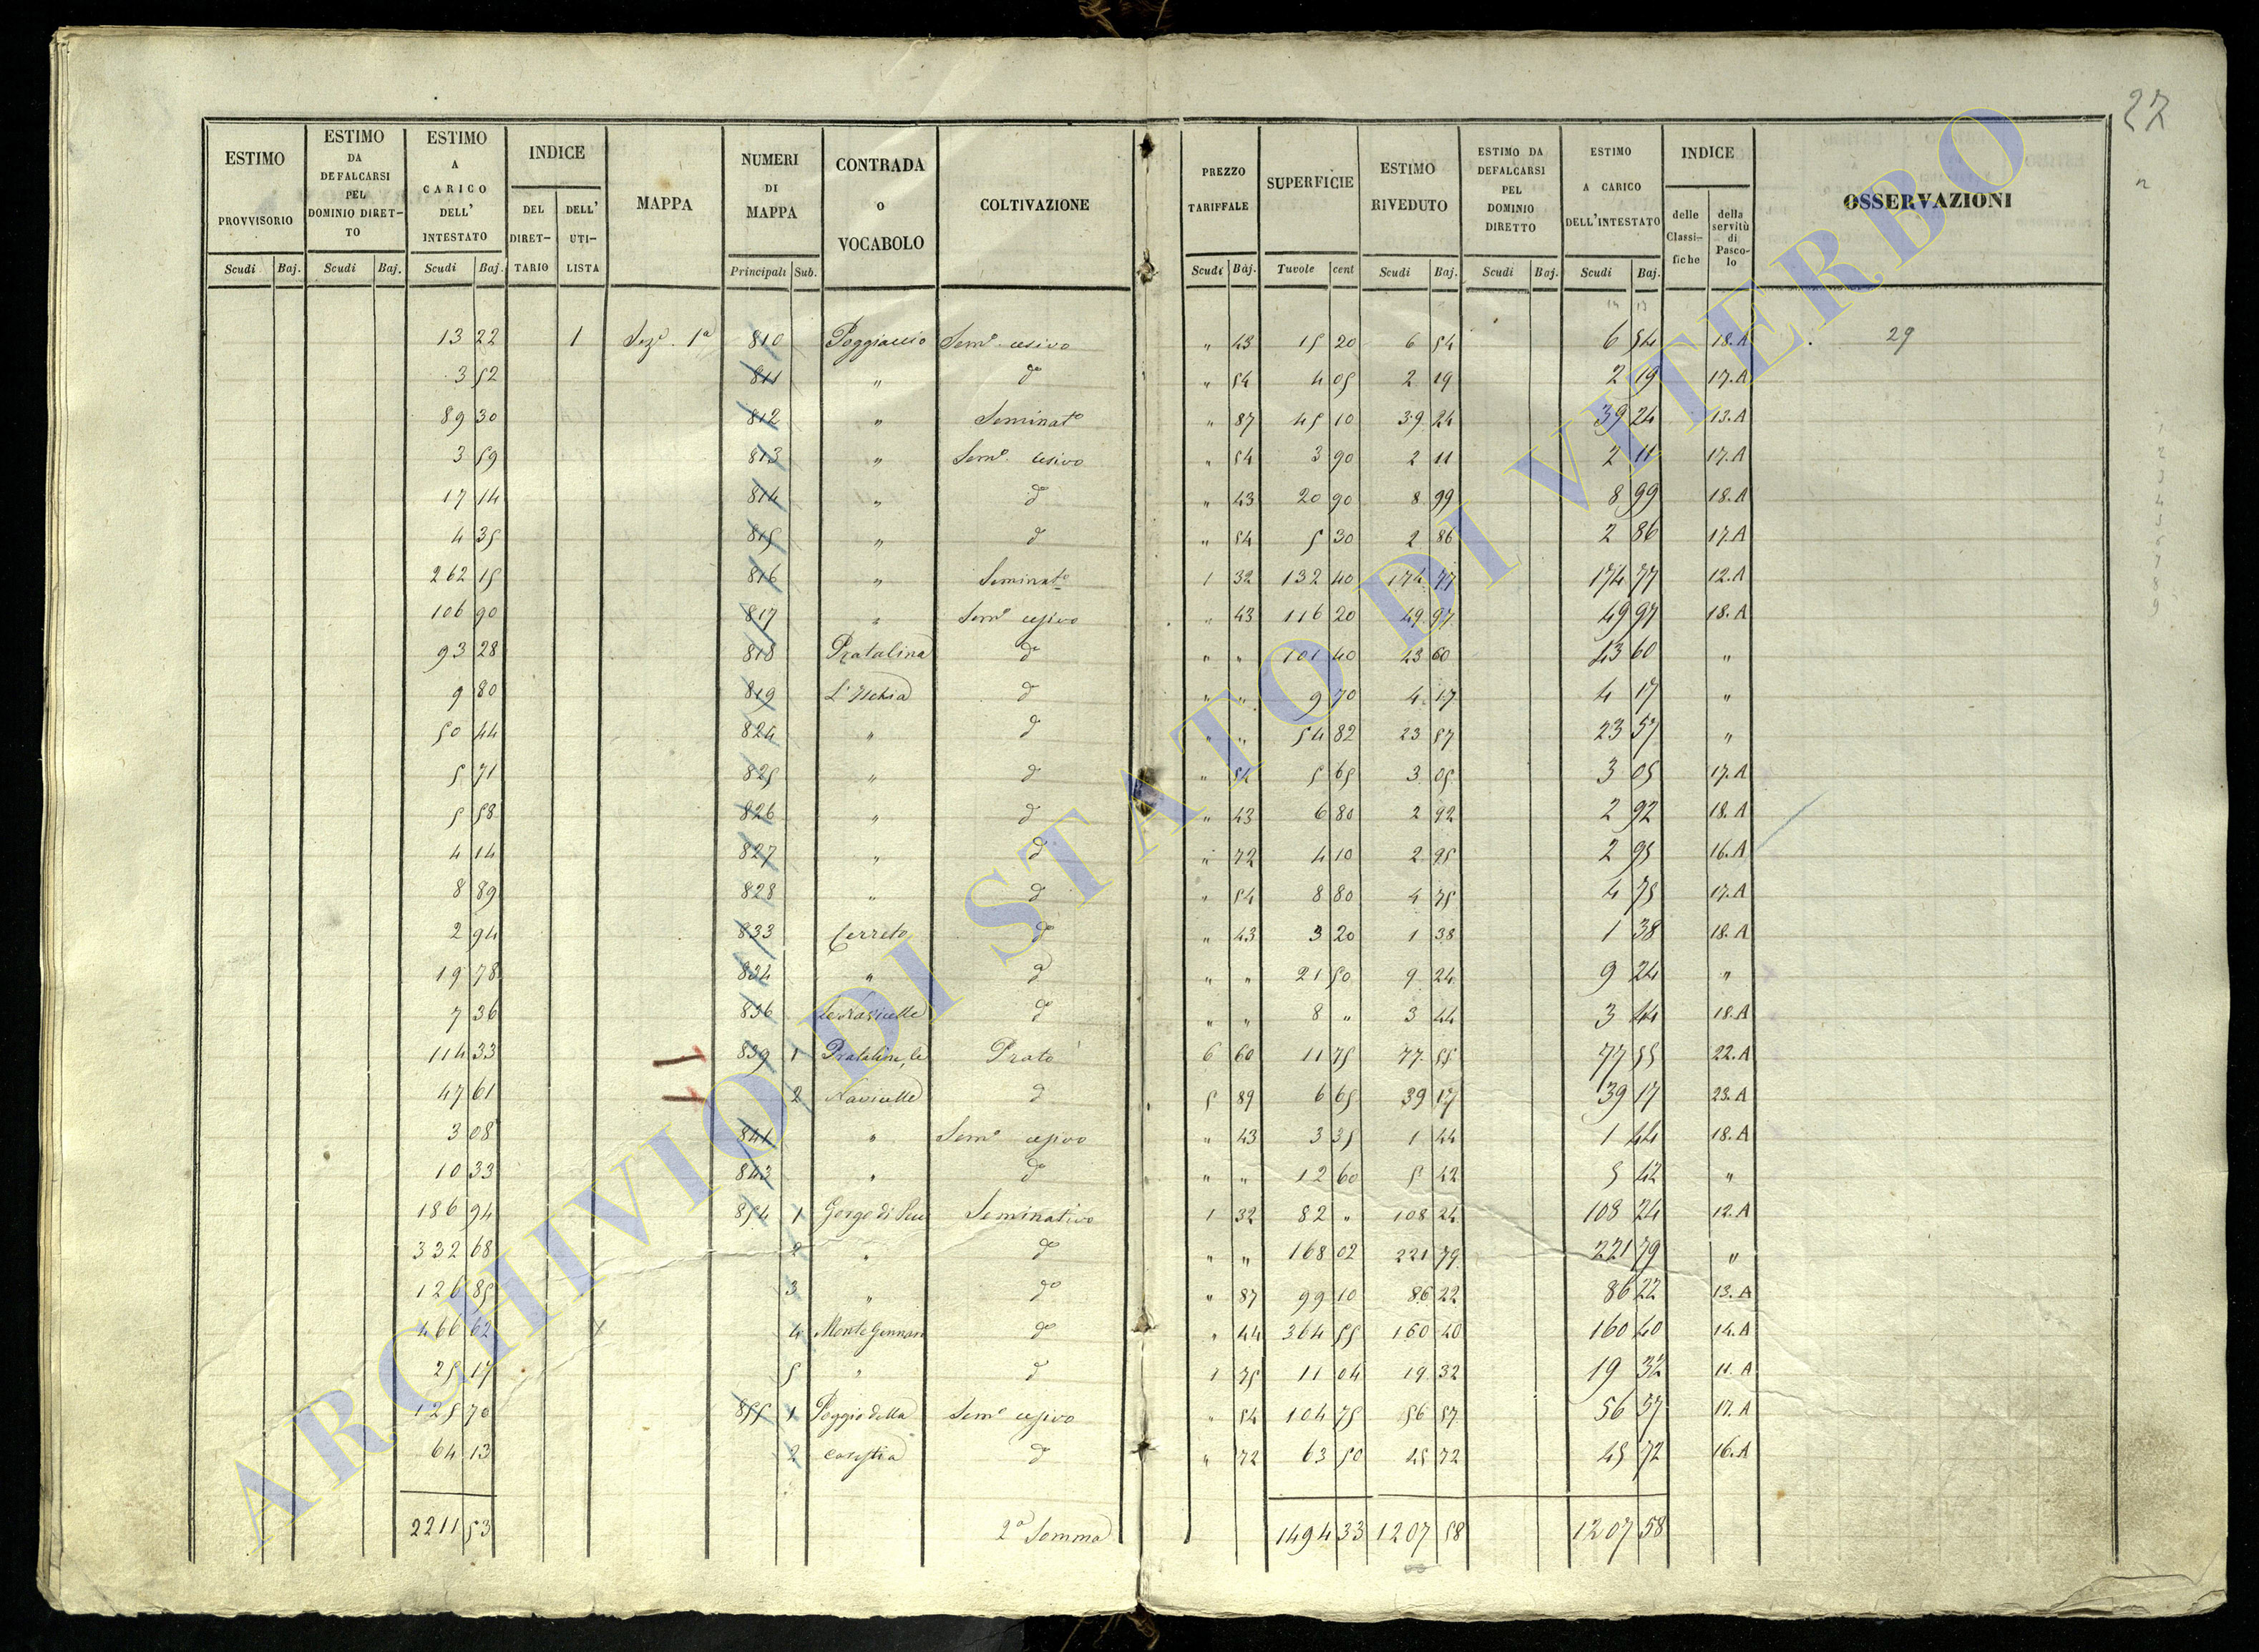 27
n
ESTIMO PROVVISORIO | ESTIMO DA DEFALCARSI PEL DOMINIO DIRETTO | ESTIMO A CARICO DELL' INTESTATO | INDICE DEL DIRETTARIO | DELL' UTILISTA | MAPPA | NUMERI DI MAPPA | CONTRADA O VOCABOLO | COLTIVAZIONE | PREZZO TARIFFALE | SUPERFICIE | ESTIMO RIVEDUTO | ESTIMO DA DEFALCARSI PEL DOMINIO DIRETTO | ESTIMO A CARICO DELL'INTESTATO | INDICE delle Classifiche | della servitù di Pascolo | OSSERVAZIONI
Scudi Baj. | Scudi Baj. | Scudi Baj. | Principali Sub. | Scudi Baj. | Tavole cent | Scudi Baj. | Scudi Baj. | Scudi Baj.
13 22 1 Sezе. 1a 810 Poggiaccio Semo. cesivo " 43 15 20 6 54 6 54 18.A 29
3 52 811 " do " 54 4 05 2 19 2 19 17.A
89 30 812 " Seminato " 87 45 10 39 24 39 24 13.A
3 59 813 " Semo. cesivo " 54 3 90 2 11 2 11 17.A
17 14 814 " d " 43 20 90 8 99 8 99 18.A
4 35 815 " d " 54 5 30 2 86 2 86 17.A
262 15 816 " Seminato 1 32 132 40 174 77 174 77 12.A
106 90 817 " Semo cesivo " 43 116 20 49 97 49 97 18.A
93 28 818 Pratalina do " " 101 40 43 60 43 60 "
9 80 819 L'Ischia d " " 9 70 4 17 4 17 "
50 44 824 " d " " 54 82 23 57 23 57 "
5 71 825 " d " 54 5 65 3 05 3 05 17.A
5 58 826 " d " 43 6 80 2 92 2 92 18.A
4 14 827 " d " 72 4 10 2 95 2 95 16.A
8 89 828 " d " 54 8 80 4 75 4 75 17.A
2 94 833 Cerreto do " 43 3 20 1 38 1 38 18.A
19 78 834 " d " " 21 50 9 24 9 24 "
7 36 836 do " " 8 " 3 44 3 44 18.A
114 33 839 1 Pratalina, le Prato 6 60 11 75 77 55 77 55 22.A
47 61 2 Navicelle d 5 89 6 65 39 17 39 17 23.A
3 08 841 " Semo cesivo " 43 3 35 1 44 1 44 18.A
10 33 843 " do " " 12 60 5 42 5 42 "
186 94 854 1 Gorgo di Seminativo 1 32 82 " 108 24 108 24 12.A
332 68 2 " do " " 168 02 221 79 221 79 "
126 85 3 " do " 87 99 10 86 22 86 22 13.A
466 62 4 Monte Gennari do " 44 364 55 160 40 160 40 14.A
25 17 5 " d 1 75 11 04 19 32 19 32 11.A
125 70 855 1 Poggio della Semo cesivo " 54 104 75 56 57 56 57 17.A
64 13 2 carestia d " 72 63 50 45 72 45 72 16.A
2211 53 2a Somma 1494 33 1207 58 1207 58
ARCHIVIO DI STATO DI VITERBO